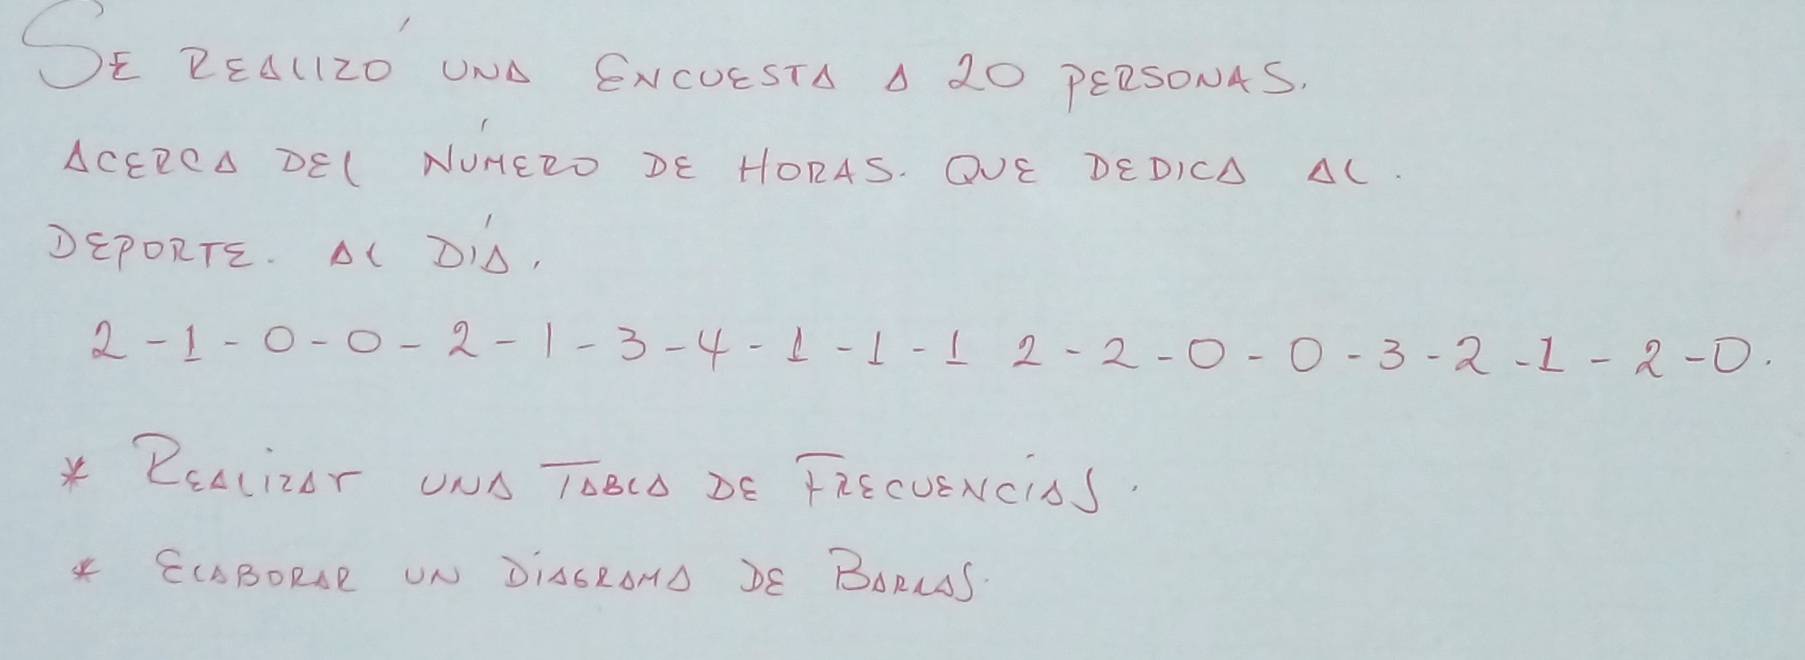 SE REALIZÓ UNA ENCUESTA A 20 PERSONAS.
ACERCA DEL NÚMERO DE HORAS. QUE DEDICA AL.
DEPORTE. AL DÍA.
2-1-0-0-2-1-3-4-1-1-1 2-2-0-0-3-2-1-2-0.
* REALIZAR UNA TABLA DE FRECUENCIAS.
* ELABORAR UN DIAGRAMA DE BARRAS.